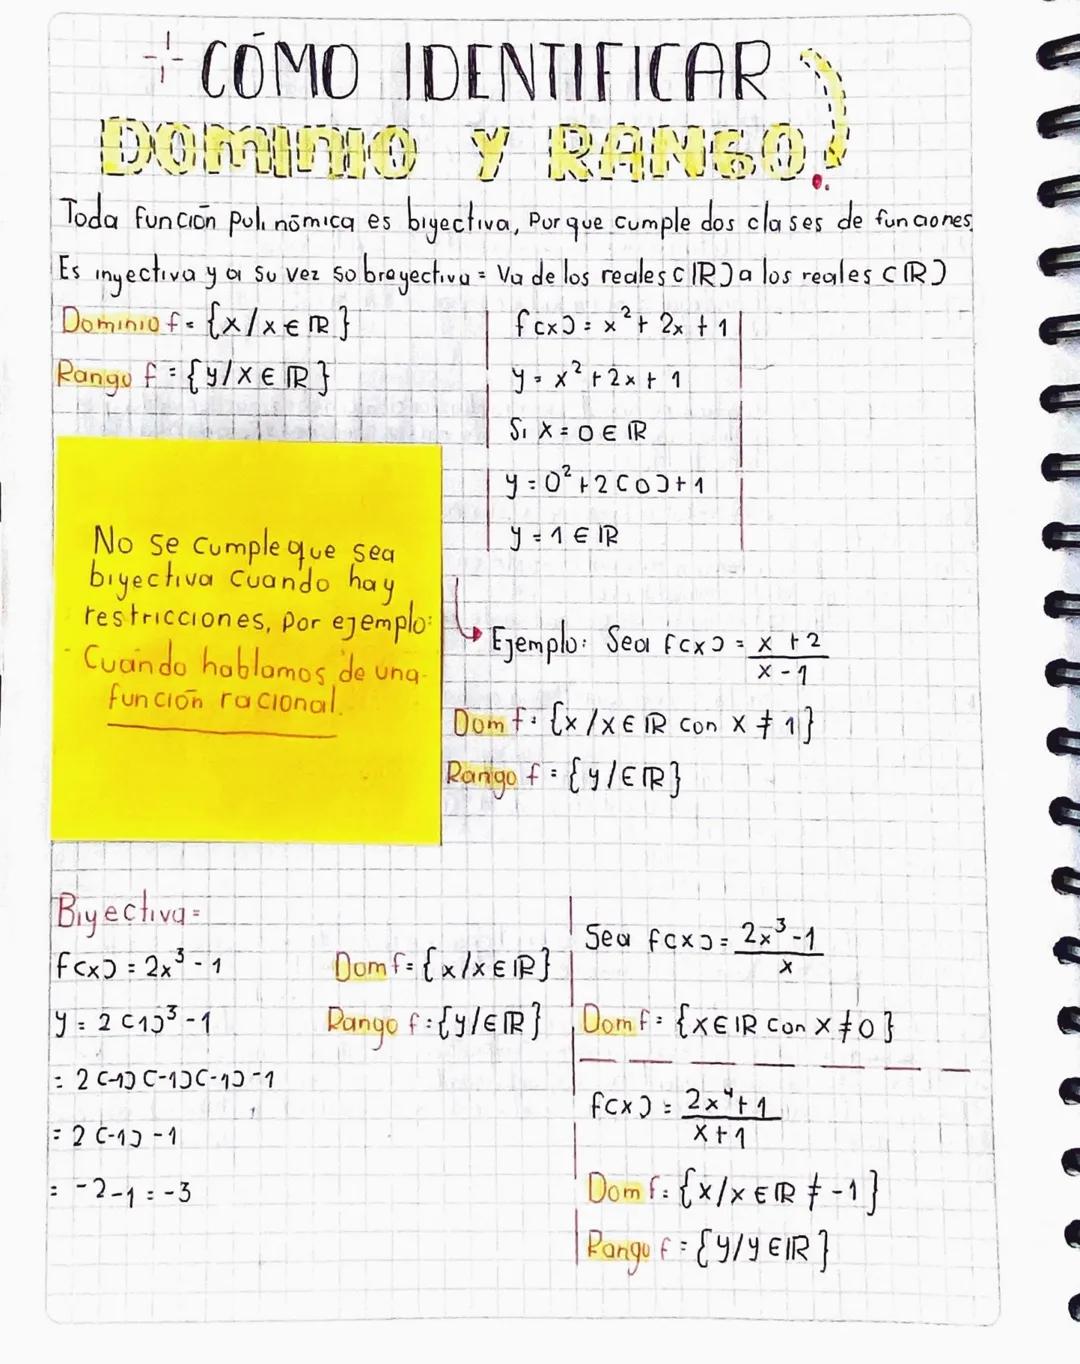 CÓMO IDENTIFICAR
DOMINIO Y RANGO
Toda función pulinómica es biyectiva, Porque cumple dos clases de funciones
Es inyectiva y a su vez sobreyectiva = Va de los reales (IR) a los reales (IR)
Dominio f = {x/x ∈ IR}
Rango f = {y/x ∈ IR}
f(x) = x² + 2x + 1
y = x² + 2x + 1
Si x = 0 ∈ IR
y = 0² + 2(0) + 1
y = 1 ∈ IR
No se cumple que sea
biyectiva cuando hay
restricciones, por ejemplo:
Cuando hablamos de una
función racional.
Ejemplo: Sea f(x) = x + 2
x - 1
Dom f: {x/x ∈ IR con x ≠ 1}
Rango f = {y/∈ IR}
Biyectiva =
f(x) = 2x³ - 1
y = 2(1)³ - 1
= 2(-1)(-1)(-1) - 1
= 2(-1) - 1
= -2 - 1 = -3
Dom f = {x/x ∈ IR}
Rango f = {y/∈ IR}
Sea f(x) = 2x³ - 1
x
Dom f = {x ∈ IR con x ≠ 0}
f(x) = 2x⁴ + 1
x + 1
Dom f = {x/x ∈ IR ≠ -1}
Rango f = {y/y ∈ IR}